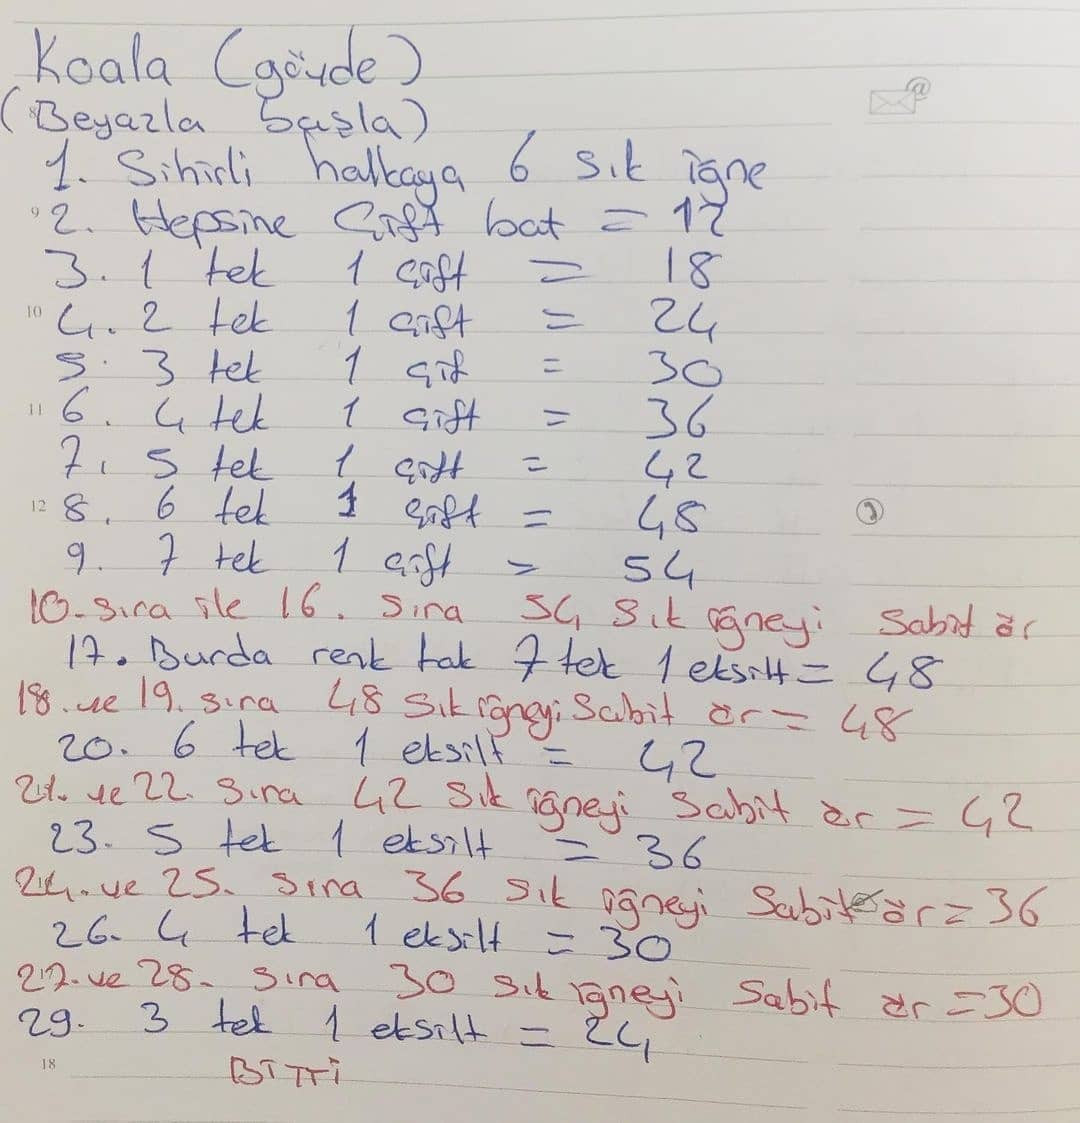 Koala (gövde)
(Beyazla başla)
1. Sihirli halkaya 6 sık iğne
9 2. Hepsine Çift bat = 12
3. 1 tek 1 çift = 18
10 4. 2 tek 1 çift = 24
5. 3 tek 1 çif = 30
11 6. 4 tek 1 çift = 36
7. 5 tek 1 çift = 42
12 8. 6 tek 1 çift = 48
9. 7 tek 1 çift = 54
10. sıra ile 16. sıra 54 sık iğneyi sabit ör
17. Burda renk tak 7 tek 1 eksilt = 48
18. ve 19. sıra 48 sık iğneyi sabit ör = 48
20. 6 tek 1 eksilt = 42
21. ve 22. sıra 42 sık iğneyi sabit ör = 42
23. 5 tek 1 eksilt = 36
24. ve 25. sıra 36 sık iğneyi sabit ör = 36
26. 4 tek 1 eksilt = 30
27. ve 28. sıra 30 sık iğneyi sabit ör = 30
29. 3 tek 1 eksilt = 24
18 BİTTİ